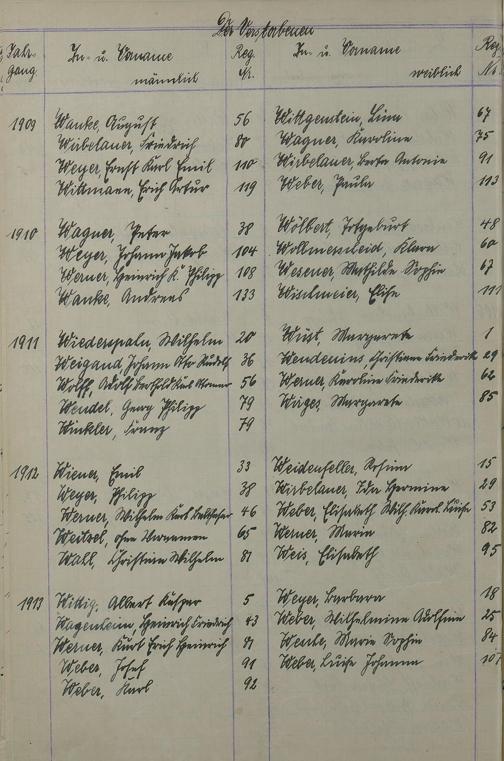 Der Verstorbenen
Jahr- Zu- u. Vorname Reg. Zu- u. Vorname Reg.
gang. männlich Nr. weiblich Nr.
1909 Wanke, August 56 Wittgenstein, Lina 67
Wirbelauer, Friedrich 80 Wagner, Karoline 75
Weyer, Ernst Karl Emil 110 Wirbelauer, Berta Antonie 91
Wittmann, Erich Artur 119 Weber, Paula 113
1910 Wagner, Peter 38 Wölbert, Totgeburt 48
Weyer, Johann Jakob 104 Wollmerscheid, Klara 60
Werner, Heinrich K. Philipp 108 Wesener, Mathilde Sophie 67
Wanke, Andreas 133 Wischmeier, Elise 111
1911 Wiederspahn, Wilhelm 20 Wüst, Margarete 1
Weigand, Johann Otto Rudolf 36 Wendenius, Christiane Friederike 29
Wolff, Adolf Karl 56 Werner Karoline Friederike 62
Wendel, Georg Philipp 79 Wirges, Margarete 85
Winkler, Franz 79
1912 Wiener, Emil 33 Weidenfeller, Rosina 15
Weyer, Philipp 38 Wirbelauer, Ida Hermine 29
Werner, Wilhelm Karl 46 Weber, Elisabeth Wilh. Karol. Luise 53
Weitzel, ohne Vornamen 65 Werner, Maria 82
Wall, Christian Wilhelm 81 Weis, Elisabeth 95
1913 Wittig, Albert Kaspar 5 Weyer, Barbara 18
Wagenheim, Heinrich Friedrich 43 Weber, Wilhelmine Adolfine 25
Werner, Kurt Erich Heinrich 81 Wenke, Marie Sophie 84
Weber, Josef 91 Weber, Luise Johanna 107
Weber, Karl 92